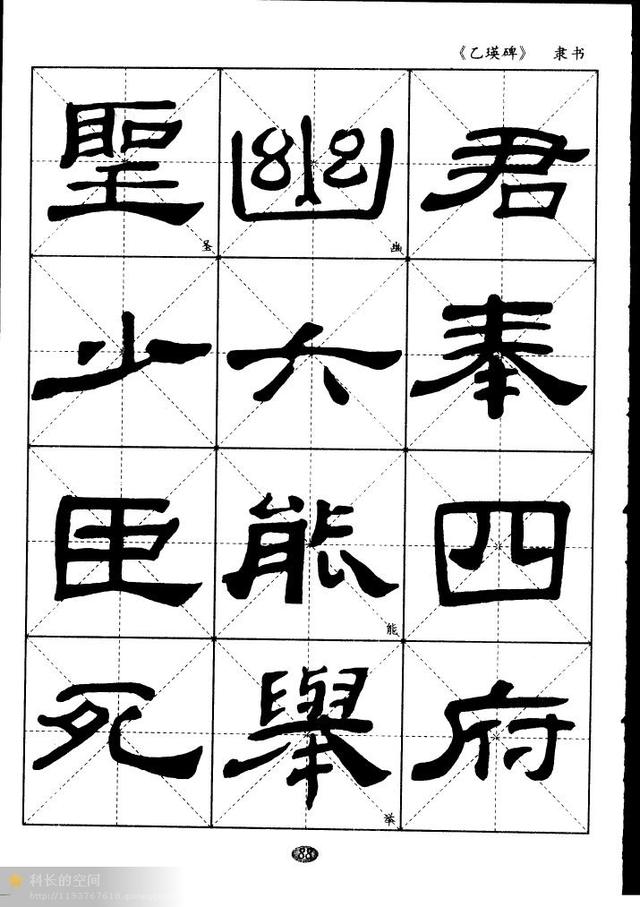 《乙瑛碑》 隶书
君奉四府
幽幽六能能舉举
聖圣少臣死
88
科长的空间